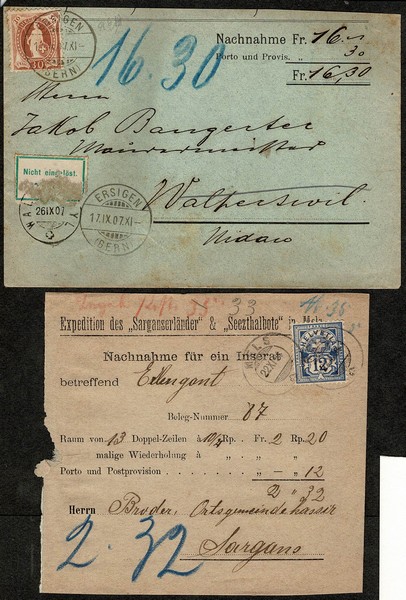 ERSIGEN
(BERN)
30
16.30
Nachnahme Fr. 16
Porto und Provis. „ 30
Fr. 16,30
Herrn
Jakob Bangerter
Maurermeister
Walperswil
Nidau
Nicht eingelöst.
26 IX 07
ERSIGEN
17.IX.07.XI-
(BERN)
33
Expedition des „Sarganserländer“ & „Seezthalbote“ in Mels
MELS
HELVETIA
12
Nachnahme für ein Inserat
betreffend
Beleg-Nummer 87
Raum von 13 Doppel-Zeilen à Rp. Fr. 2 Rp. 20
malige Wiederholung à „ „ „
Porto und Postprovision . . . . . . . „ — „ 12
2 „ 32
Herrn Broder, Ortsgemeindekassier
Sargans
2.32